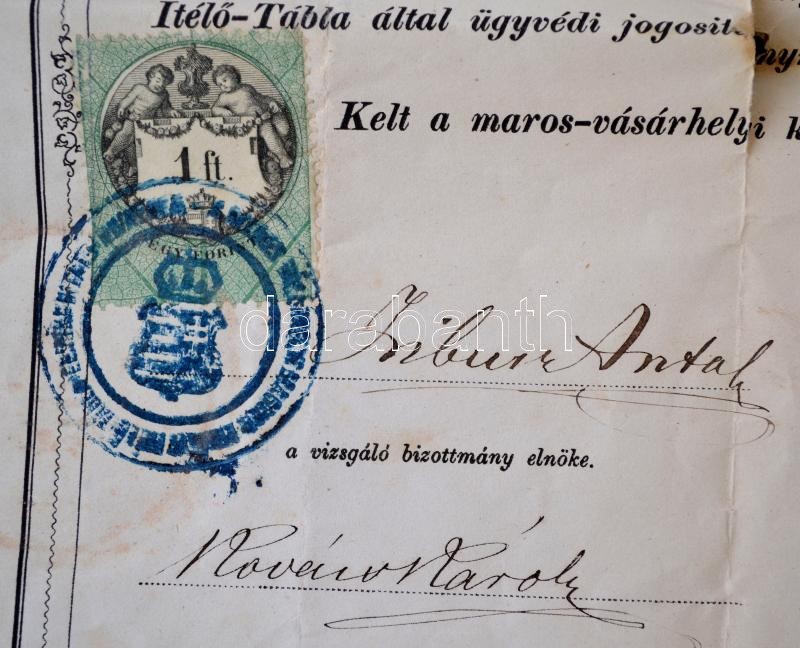 Itélő-Tábla által ügyvédi jogosit
Kelt a maros-vásárhelyi k
1 ft.
EGY FORINT
darabanth
Antal
a vizsgáló bizottmány elnöke.
Kovács Károly